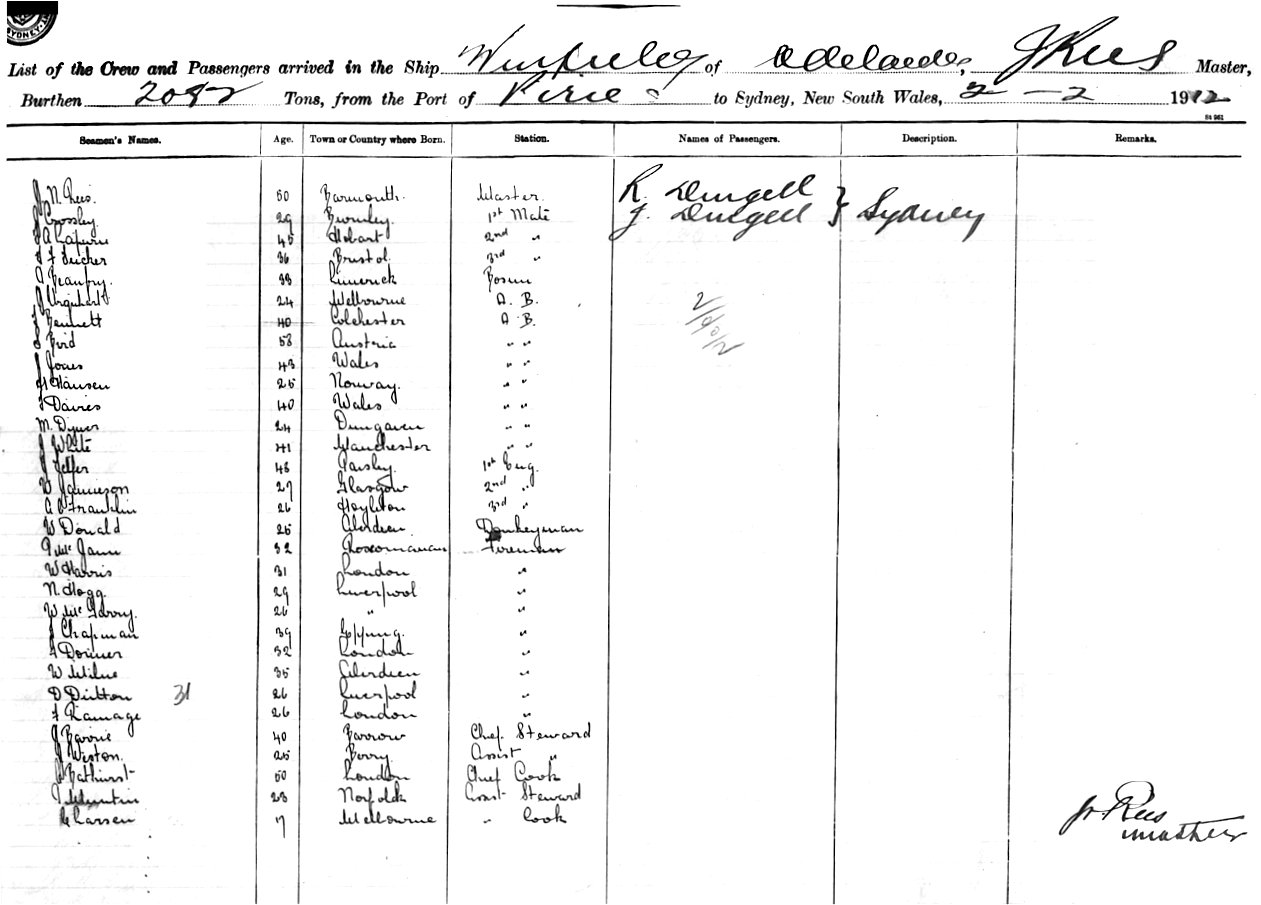 SYDNEY
List of the Crew and Passengers arrived in the Ship of Adelaide, J Rees Master,
Burthen 2082 Tons, from the Port of Pirie to Sydney, New South Wales, 2 - 2 1912
Seamen's Names. Age. Town or Country where Born. Station. Names of Passengers. Description. Remarks.
J. N. Rees. 50 Barmouth. Master. R. Dungell
J Crossley 29 Burnley. 1st Mate J. Dungell } Sydney
45 Hobart 2nd "
36 Bristol. 3rd "
Beaufry. 38 Limerick Bosun
J Urquhart 24 Melbourne A. B.
J Bennett 40 Colchester A. B.
58 Austria " "
J Jones 43 Wales " "
H Hansen 25 Norway. " "
J Davies 40 Wales " "
M. Dyver 24 Dungaven " "
J White 41 Manchester " "
J Telfer 48 Paisley. 1st Eng.
W Jamieson 27 Glasgow 2nd "
Franklin 26 Hoylton 3rd "
W Donald 25 Aberdeen Donkeyman
32 Roscommon Fireman
W Harris 31 London "
N. Hogg. 29 Liverpool "
W McGarry. 26 " "
J Chapman 39 Epping. "
Dormer 32 London "
W Milne 35 Aberdeen "
D Dutton 31 26 Liverpool "
F Ramage 26 London "
J Barrie 40 Barrow Chief Steward
J Weston. 25 Barry Assist "
Bathurst 50 London Chief Cook
23 Norfolk Steward
Larsen Melbourne " Cook
Jn Rees
master